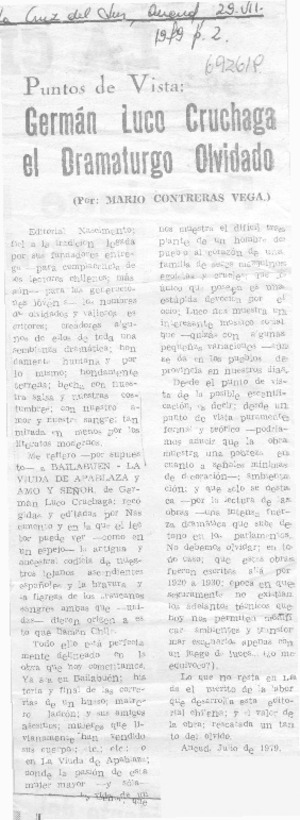 La Cruz del Sur, Ancud, 29.VII.
1979 p. 2.
692618
Puntos de Vista:
Germán Luco Cruchaga
el Dramaturgo Olvidado
(Por: MARIO CONTRERAS VEGA.)
Editorial Nascimento;
fiel a la tradición legada
por sus fundadores entre-
ga —para complacencia de
los lectores chilenos; más
aún— para las generacio-
nes jóvenes— los nombres
de olvidados y valiosos es
critores; creadores algu-
nos de ellos de toda una
tendencia dramática; hon
damente humana y por
lo mismo; hondamente
terreda; hecha con nues-
tra salsa y nuestras cos-
tumbres; con nuestro a-
mor y nuestra sangre; tan
mirada en menos por los
literatos modernos.
Me refiero —por supues-
to— a BAILABUEN - LA
VIUDA DE APABLAZA y
AMO Y SEÑOR, de Ger-
mán Luco Cruchaga; reco
gidas y editadas por Nas
cimento y en la que el lec
tor puede ver —como en
un espejo— la antigua y
ancestral codicia de nues-
tros lejanos ascendientes
españoles y la bravura y
la fiereza de los araucanos
sangres ambas que —uni-
das— dieron origen a es
to que llaman Chile.
Todo ello está perfecta-
mente delineado en la
obra que hoy comentamos.
Ya sea en Bailabuén; his-
toria y final de las corre-
rías de un huaso; mairre
ro ladrón; y sus amigos
asesinos; mujeres que li-
vianamente han vendido
sus cuerpos; etc.; etc.; o
en La Viuda de Apablaza;
donde la pasión de esta
mujer mayor —y sola—
y viuda; de un
nos muestra el difícil tras
plante de un hombre del
pueblo al corazón de una
familia de seres mezquinos
egoístas y crueles; que lo
único que poseen es una
estúpida devoción por el
ocio; Luco nos muestra un
interesante mosaico social
que —quizás con algunas
pequeñas variaciones —aún
se da en los pueblos de
provincia en nuestros días.
Desde el punto de vis-
ta de la posible escenti-
ficación, es decir; desde un
punto de vista puramente
formal y teórico —podría-
mos aducir que la obra
muestra una pobreza en
cuanto a señales mínimas
de dirección; ambienta-
ción; y que sólo se desta
ca —por la lectura de las
obras —una intensa fuer-
za dramática que sube de
tono en los parlamentos.
No debemos olvidar; en to
do caso; que estas obras
fueron escritas allá por
1920 a 1930; época en que
seguramente no existían
los adelantos técnicos que
hoy nos permiten modifi
car ambientes y transfor
mar escenarios apenas con
un juego de luces. (¿o me
equivoco?).
Lo que no resta en na-
da el mérito de la labor
que desarrolla esta edito-
rial chilena; y el valor de
la obra; rescatada un tan
to del olvido.
Ancud, Julio de 1979.